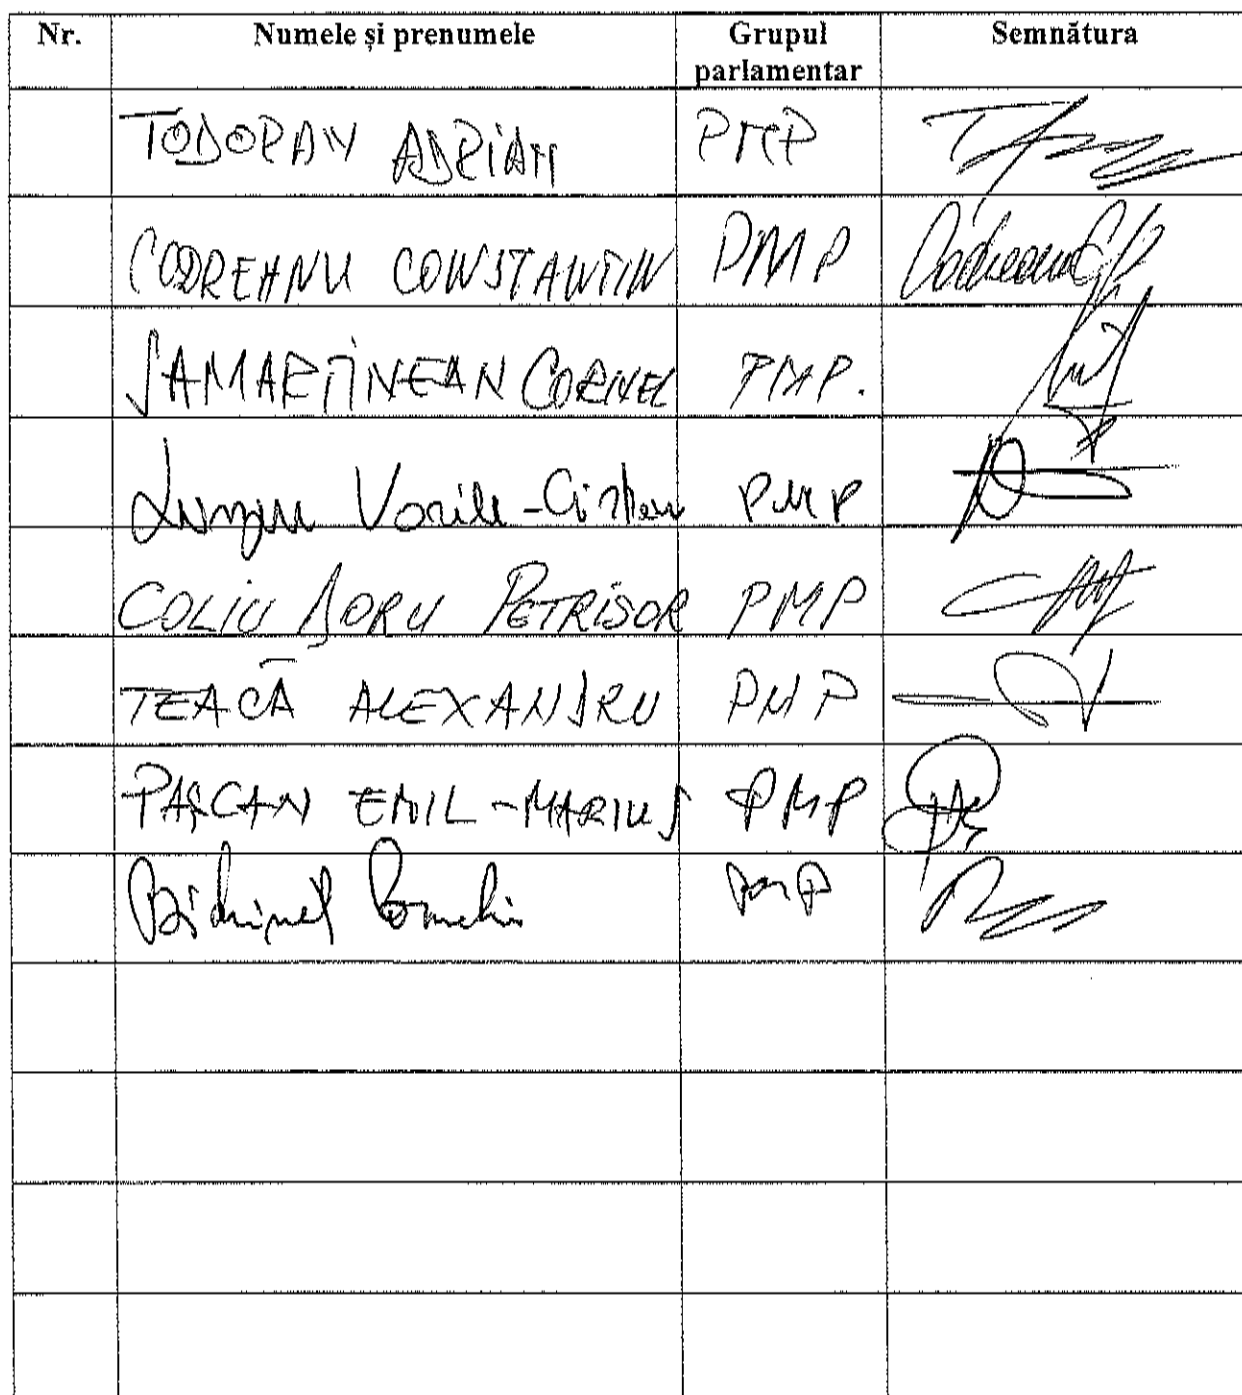 Nr. Numele și prenumele Grupul parlamentar Semnătura
TODORAN ADRIAN PMP
CODREANU CONSTANTIN PMP Codreanu
SAMARTINEAN CORNEL PMP.
Lungu Vasile-Cristian PMP
COLIU DORU PETRISOR PMP
TEACĂ ALEXANDRU PMP
PAȘCAN EMIL-MARIUS PMP
Bichineț Corneliu PMP